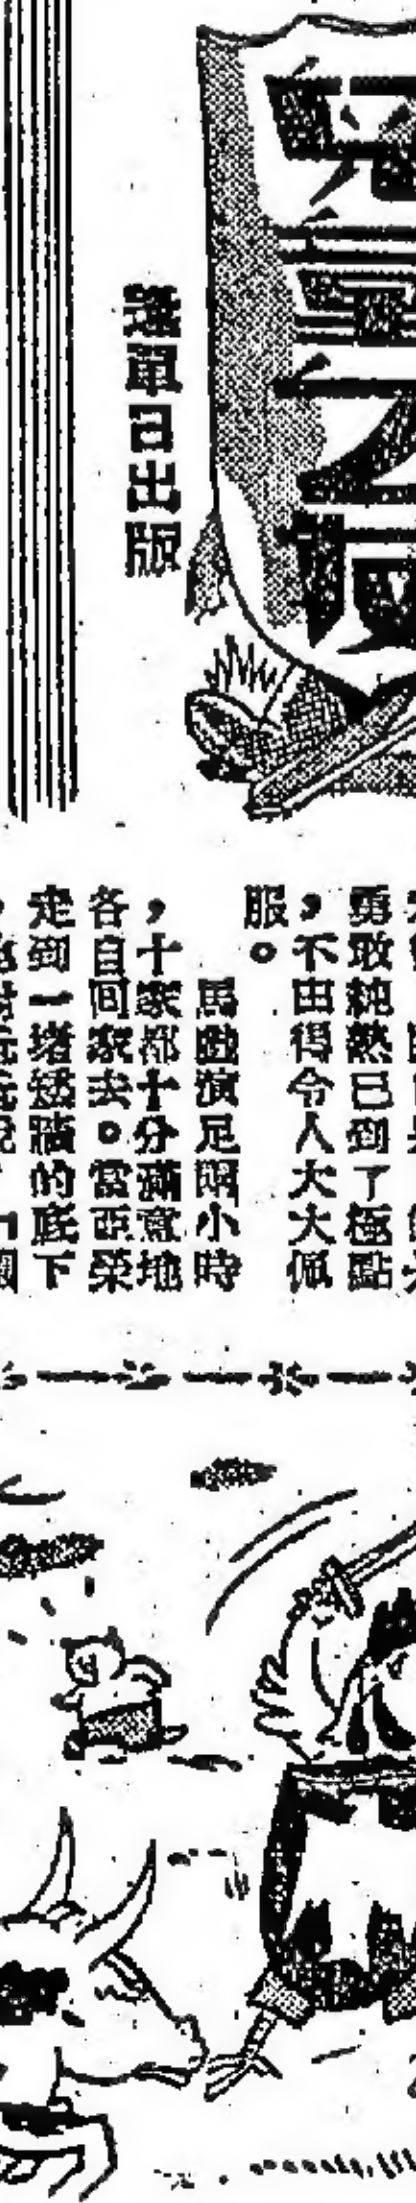 兒童之頁
逢單日出版
勇敢純熟已到了極點
，不由得令人大大佩
服。
馬戲演足兩小時
，十家都十分滿意地
各自回家去。當亞榮
走到一堵矮牆的底下